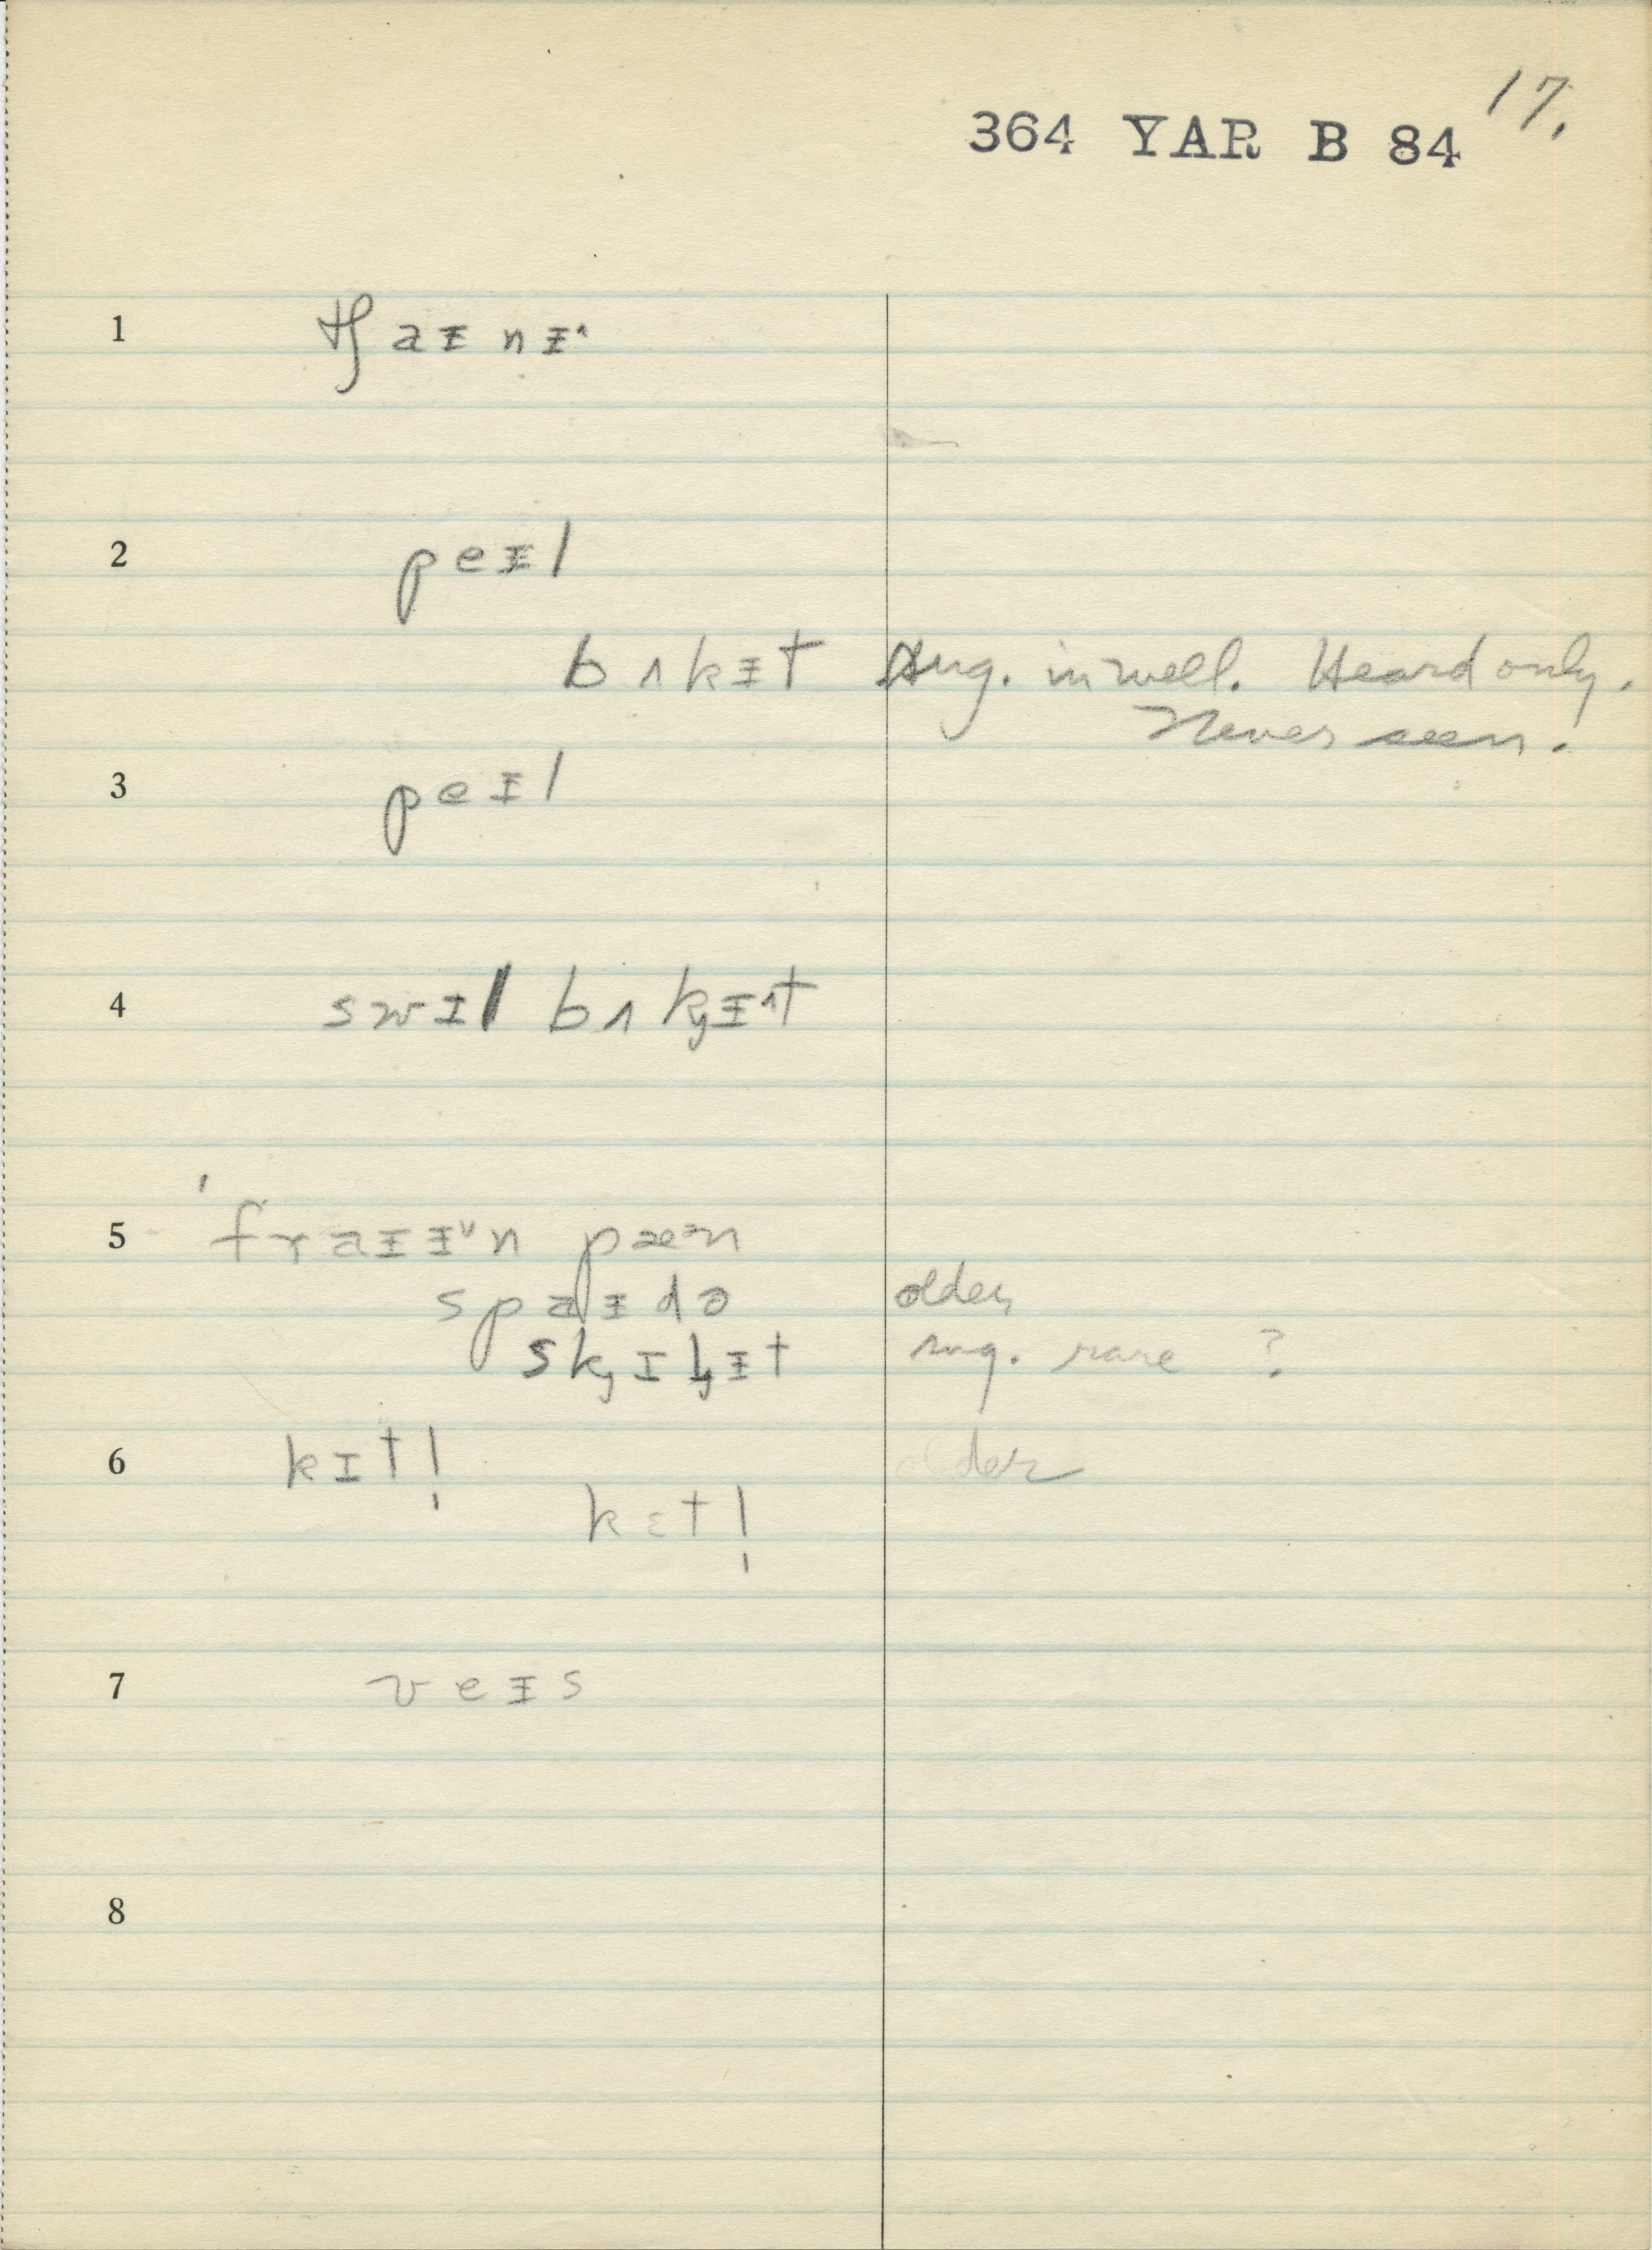 17.
364 YAR B 84
1 tʃaᵻnᵻ˄
2 peᵻl
bʌkᵻt Sug. in well. Heard only.
Never seen.
3 peᵻl
4 swɪl bʌk̡ᵻ˄t
5 ˈfraᵻᵻ˅n pæən
spaᵻdə older,
sk̡ɪl̡ᵻt sug. rare ?
6 kɪt! older
kɛt!
7 veᵻs
8